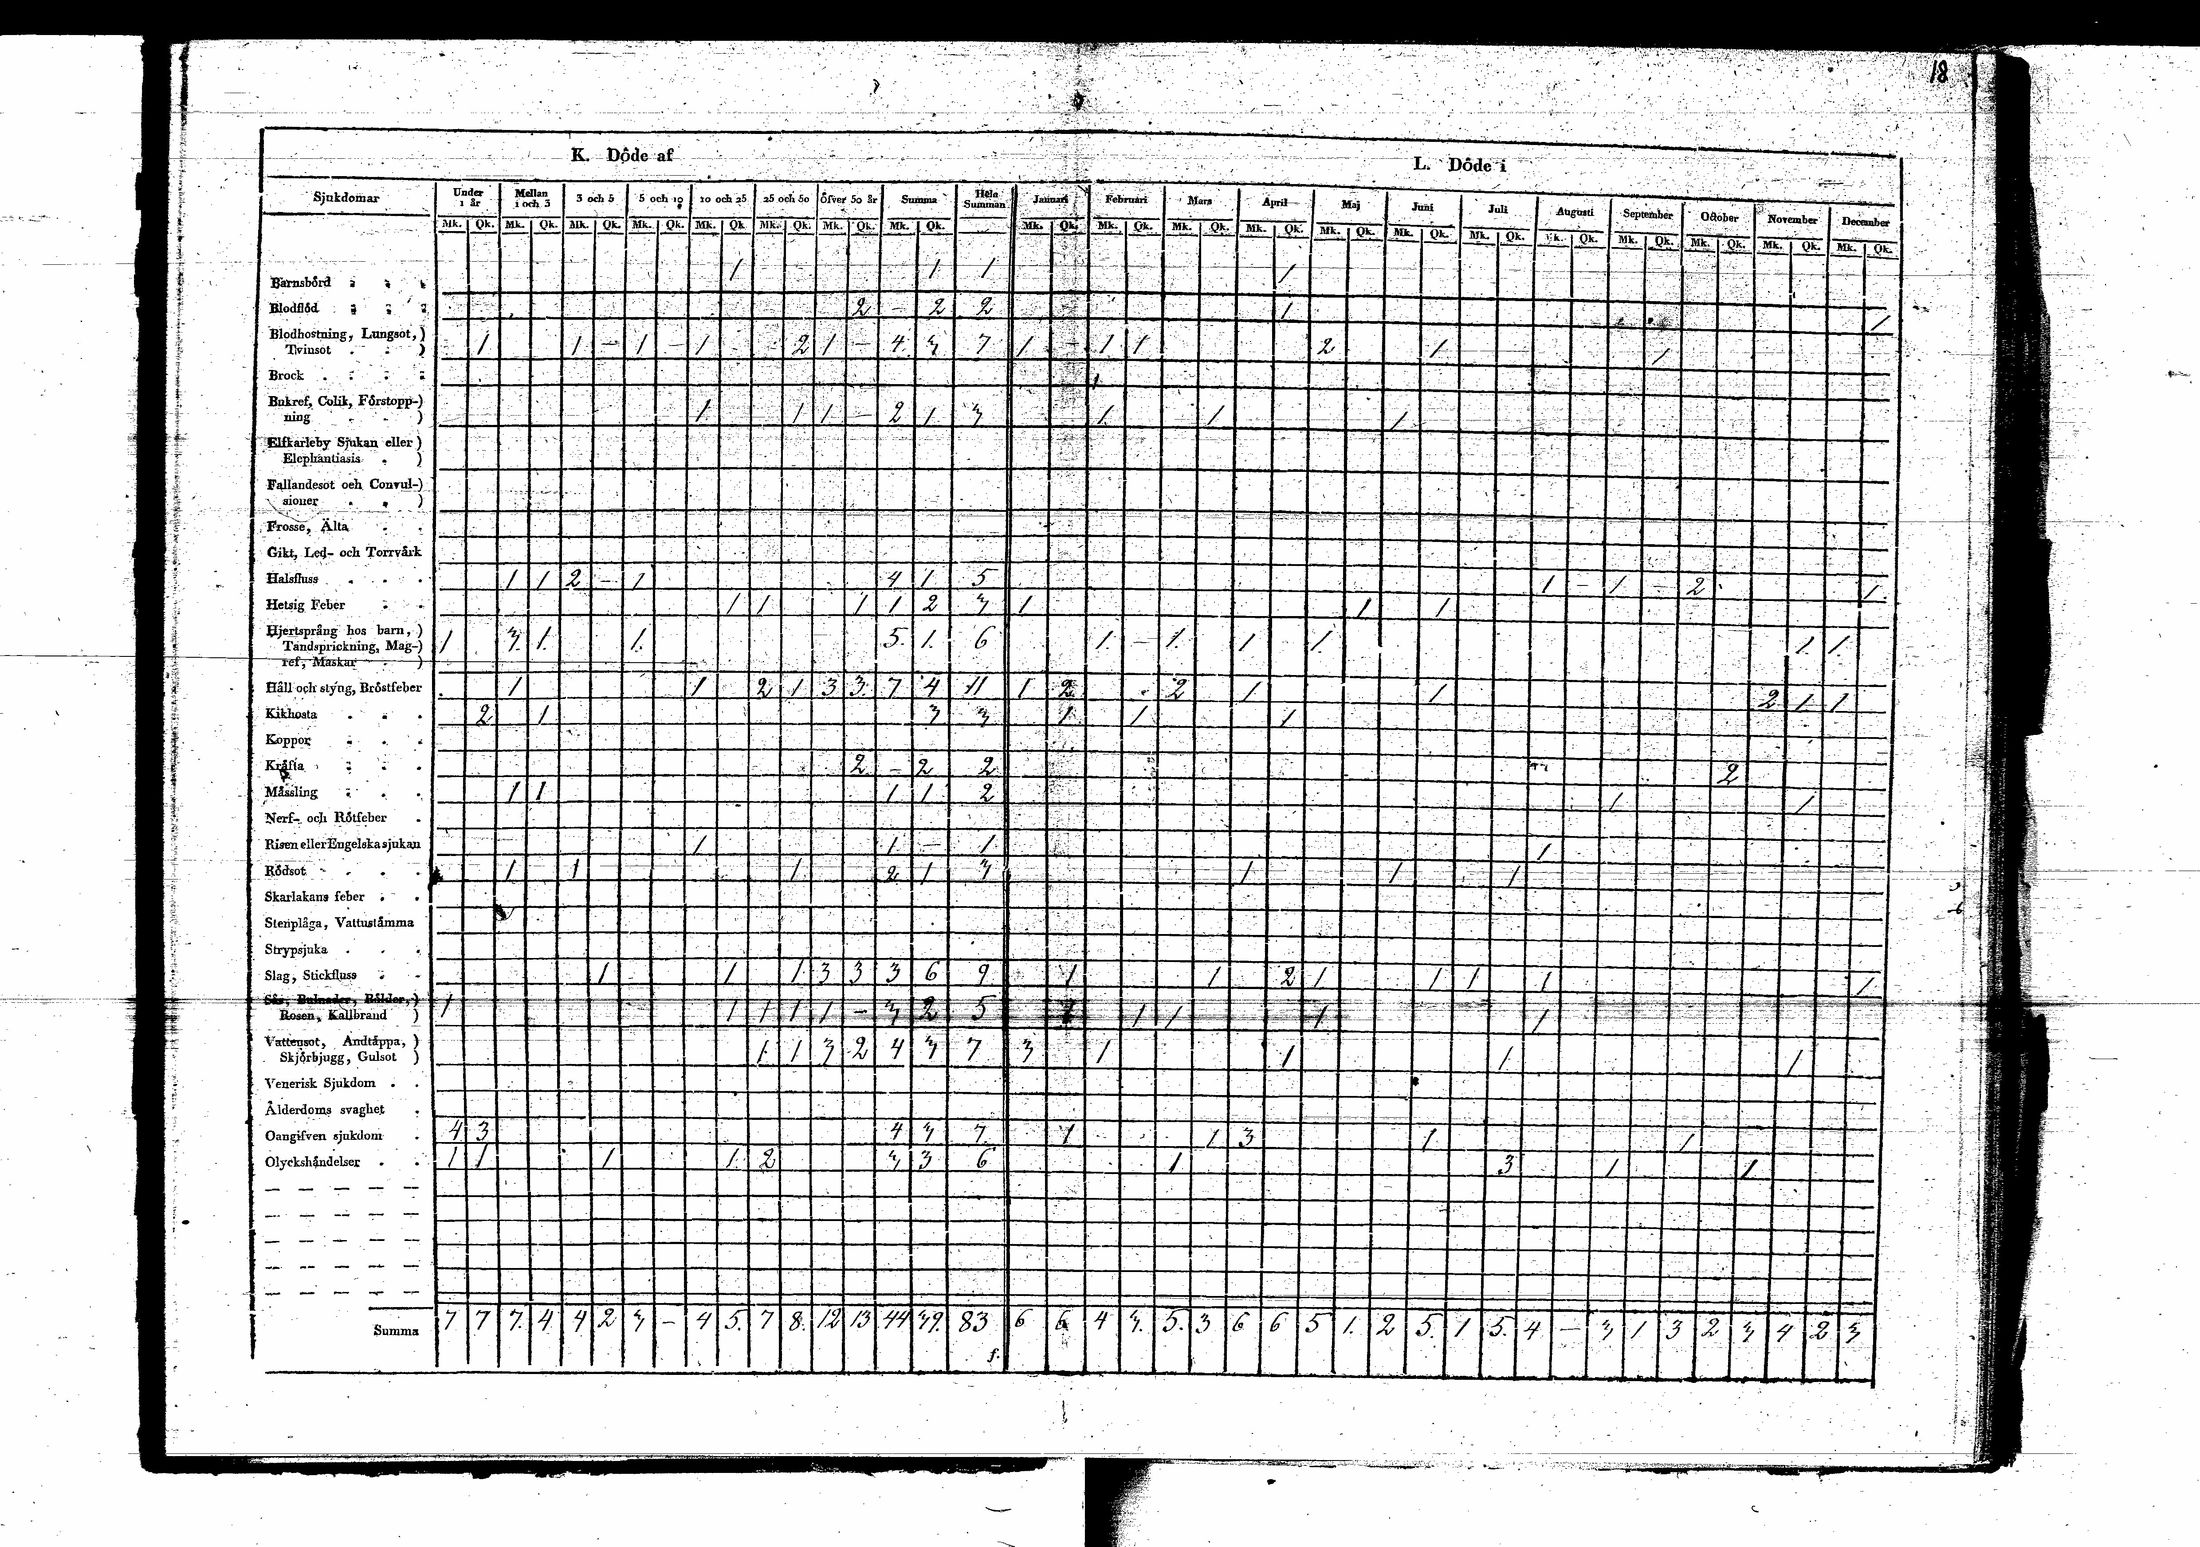 18
K. Döde af L. Döde i
Sjukdomar Under 1 år Mellan 1 och 3 3 och 5 5 och 10 10 och 25 25 och 50 Öfver 50 år Summa Hela Summan Januari Februari Mars April Maj Juni Juli Augusti September October November December
Mk. Qk. Mk. Qk. Mk. Qk. Mk. Qk. Mk. Qk. Mk. Qk. Mk. Qk. Mk. Qk. Mk. Qk. Mk. Qk. Mk. Qk. Mk. Qk. Mk. Qk. Mk. Qk. Mk. Qk. Mk. Qk. Mk. Qk. Mk. Qk. Mk. Qk. Mk. Qk.
Barnsbörd 1 1 1 1
Blodflöd 2 - 2 2 1 1
Blodhostning, Lungsot,)
Tvinsot 1 1 - 1 - 1 2 1 - 4 3 7 1 - 1 1 2 1 1
Brock
Bukref, Colik, Förstopp-)
ning 1 1 1 - 2 1 3 1 1 1
Elfkarleby Sjukan eller)
Elephantiasis )
Fallandesot och Convul-)
sioner )
Frosse, Älta
Gikt, Led- och Torrvärk
Halsfluss 1 1 2 - 1 4 1 5 1 - 1 - 2 1
Hetsig Feber 1 1 1 1 2 3 1 1 1
Hjertsprång hos barn, )
Tandsprickning, Mag-) 1 3 1 1 5 1 6 1 - 1 1 1 1 1
ref, Maskar )
Håll och styng, Bröstfeber 1 1 2 1 3 3 7 4 11 1 2 2 1 1 2 1 1
Kikhosta 2 1 3 3 1 1 1
Koppor
Kräfta 2 - 2 2 2
Mässling 1 1 1 1 2 1 1
Nerf- och Rötfeber
Risen eller Engelska sjukan 1 1 - 1 1
Rödsot 1 1 1 2 1 3 1 1 1
Skarlakans feber
Stenplåga, Vattustämma
Strypsjuka
Slag, Stickfluss 1 1 1 3 3 3 6 9 1 1 2 1 1 1 1 1
Sår, Bulnader, Bölder,)
Rosen, Kallbrand ) 1 1 1 1 1 - 3 2 5 1 1 1 1 1
Vattensot, Andtäppa, )
Skjörbjugg, Gulsot ) 1 1 3 2 4 3 7 3 1 1 1 1
Venerisk Sjukdom
Ålderdoms svaghet
Oangifven sjukdom 4 3 4 3 7 1 1 3 1 1
Olyckshändelser 1 1 1 1 2 3 3 6 1 3 1 1
Summa 7 7 7 4 4 2 3 - 4 5 7 8 12 13 44 39 83 6 6 4 3 5 3 6 6 5 1 2 5 1 5 4 - 3 1 3 2 3 4 2 3